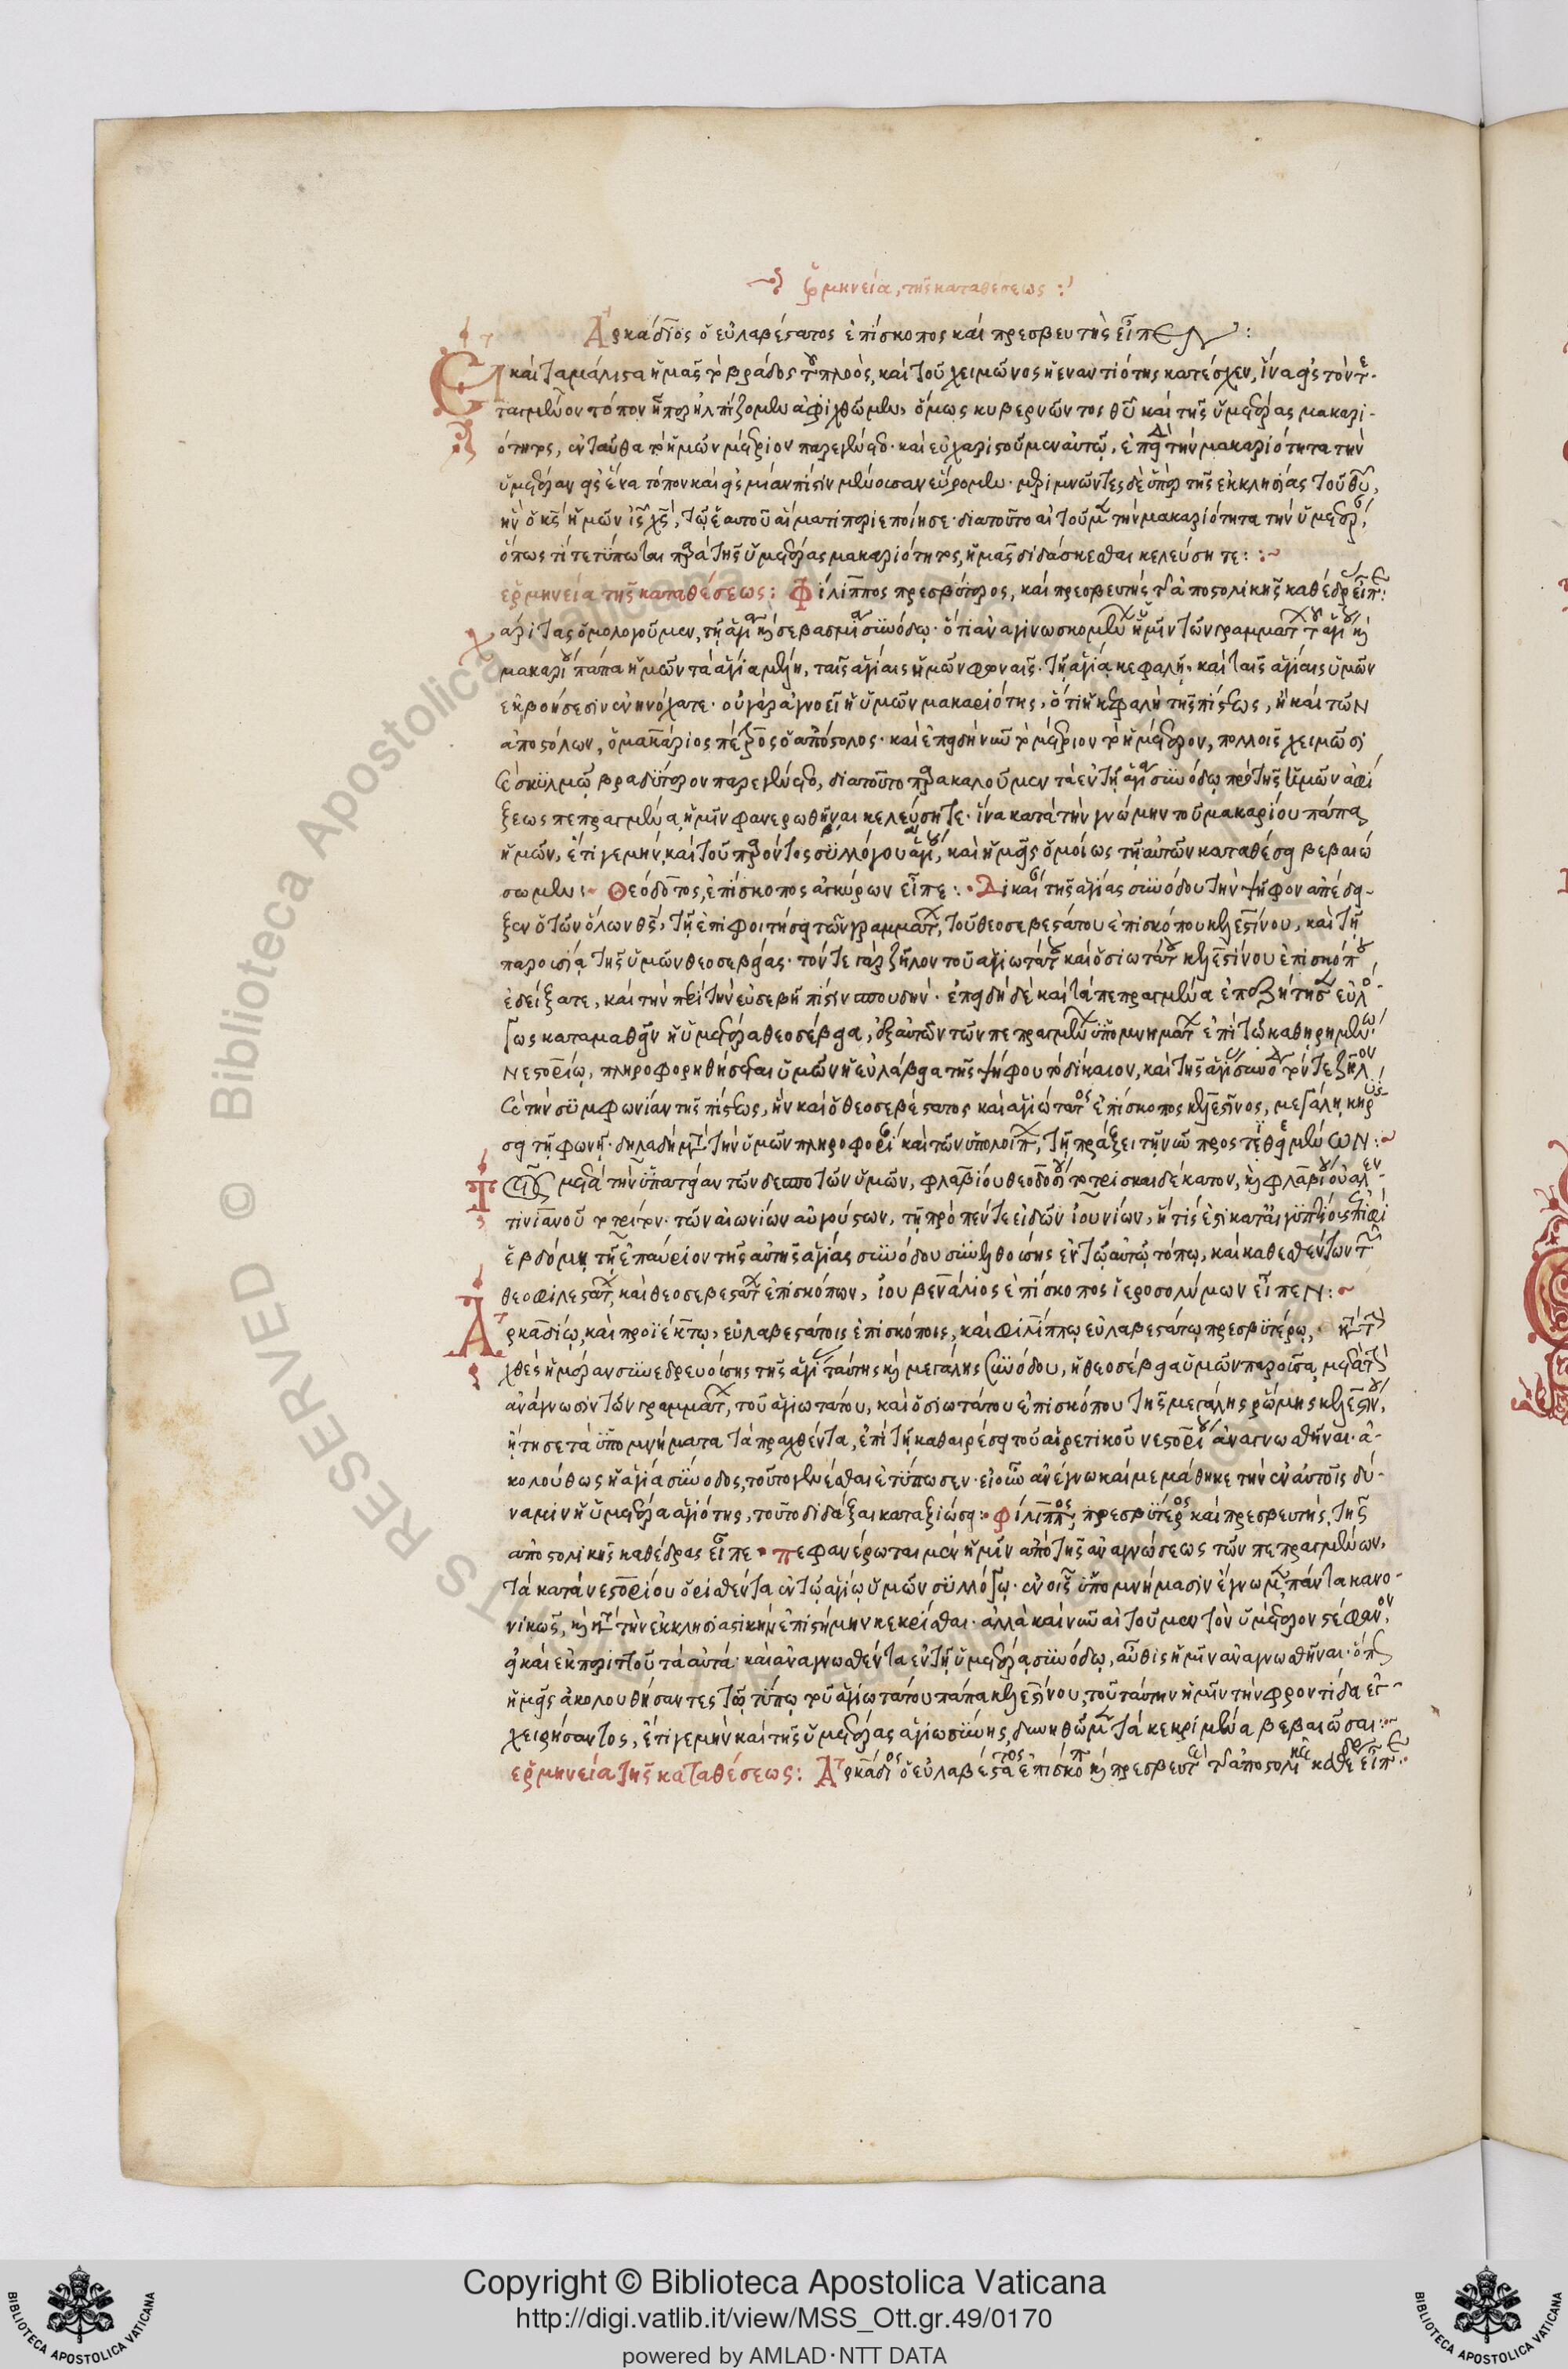 ἑρμηνεία, τῆς καταθέσεως :
Ἀρκάδιος ὁ εὐλαβέστατος ἐπίσκοπος καὶ πρεσβευτὴς εἶπεν :
Εἰ καὶ τὰ μάλιστα ἡμᾶς τὸ βράδος τοῦ πλοὸς, καὶ τοῦ χειμῶνος ἡ ἐναντιότης κατέσχεν, ἵνα εἰς τὸν τε-
ταγμένον τόπον ᾗπερ ἠλπίζομεν ἀφιχθῶμεν, ὅμως κυβερνῶντος θῦ καὶ τῆς ὑμετέρας μακαρι-
ότητος, ἐνταῦθα τὸ ἡμῶν μέτριον παρεγένετο· καὶ εὐχαριστοῦμεν αὐτῷ, ἐπειδὴ τὴν μακαριότητα τὴν
ὑμετέραν εἰς ἕνα τόπον καὶ εἰς μίαν πίστιν μένουσαν εὕρομεν· μεριμνῶντες δὲ ὑπὲρ τῆς ἐκκλησίας τοῦ θῦ,
ἣν ὁ κς ἡμῶν ις χς, τῷ ἑαυτοῦ αἵματι περιεποίησε· διὰ τοῦτο αἰτοῦμεν τὴν μακαριότητα τὴν ὑμετέραν,
ὅπως τί τετύπωται παρὰ τῆς ὑμετέρας μακαριότητος, ἡμᾶς διδάσκεσθαι κελεύσητε :
ἑρμηνεία τῆς καταθέσεως : Φίλιππος πρεσβύτερος, καὶ πρεσβευτὴς τῆς ἀποστολικῆς καθέδρας εἶπε :
χάριτας ὁμολογοῦμεν, τῇ ἁγίᾳ κ σεβασμίᾳ συνόδῳ· ὅτι ἀναγινωσκομένων ἡμῖν τῶν γραμμάτων τοῦ ἁγίου κ
μακαρίου πάπα ἡμῶν τὰ ἅγια μέλη, ταῖς ἁγίαις ἡμῶν φωναῖς· τῇ ἁγίᾳ κεφαλῇ, καὶ ταῖς ἁγίαις ὑμῶν
ἐκβοήσεσιν ἐνηνόχατε· οὐ γὰρ ἀγνοεῖ ἡ ὑμῶν μακαριότης, ὅτι ἡ κεφαλὴ τῆς πίστεως, ἢ καὶ τῶν
ἀποστόλων, ὁ μακάριος πέτρος ὁ ἀπόστολος· καὶ ἐπειδὴ νῦν τὸ μέτριον τὸ ἡμέτερον, πολλοῖς χειμῶσι
καὶ σκυλμῷ βραδύτερον παρεγένετο, διὰ τοῦτο παρακαλοῦμεν τὰ ἐν τῇ ἁγίᾳ συνόδῳ πρὸ τῆς ἡμῶν ἀφί-
ξεως πεπραγμένα, ἡμῖν φανερωθῆναι κελεύσητε· ἵνα κατὰ τὴν γνώμην τοῦ μακαρίου πάπα
ἡμῶν, ἔτι γε μὴν καὶ τοῦ παρόντος συλλόγου ἁγίου, καὶ ἡμεῖς ὁμοίως τῇ αὐτῶν καταθέσει βεβαιώ
σωμεν : Θεόδοτος, ἐπίσκοπος ἀγκύρων εἶπε : Δικαίαν τῆς ἁγίας συνόδου τὴν ψῆφον ἀπέδει-
ξεν ὁ τῶν ὅλων θς, τῇ ἐπιφοιτήσει τῶν γραμμάτων, τοῦ θεοσεβεστάτου ἐπισκόπου κελεστίνου, καὶ τῇ
παρουσίᾳ τῆς ὑμῶν θεοσεβείας· τόν τε γὰρ ζῆλον τοῦ ἁγιωτάτου καὶ ὁσιωτάτου κελεστίνου ἐπισκόπου
ἐδείξατε, καὶ τὴν περὶ τὴν εὐσεβῆ πίστιν σπουδήν· ἐπειδὴ δὲ καὶ τὰ πεπραγμένα ἐπεζήτησεν εὐλό-
γως καταμαθεῖν ἡ ὑμετέρα θεοσέβεια, ἐξ αὐτῶν τῶν πεπραγμένων ὑπομνημάτων ἐπὶ τῷ καθῃρημένῳ
νεστορίῳ, πληροφορηθήσεται ὑμῶν ἡ εὐλάβεια τῆς ψήφου τὸ δίκαιον, καὶ τῆς ἁγίας συνόδου τόν τε ζῆλον
καὶ τὴν συμφωνίαν τῆς πίστεως, ἣν καὶ ὁ θεοσεβέστατος καὶ ἁγιώτατος ἐπίσκοπος κελεστῖνος, μεγάλῃ κηρύσ-
σει τῇ φωνῇ· δηλαδὴ μετὰ τὴν ὑμῶν πληροφορίαν καὶ τῶν ὑπολοίπων, τῇ πράξει τῇ νῦν προστεθειμένων :
Τοῖς μετὰ τὴν ὑπατείαν τῶν δεσποτῶν ὑμῶν, φλαβίου θεοδοσίου τὸ τρισκαιδέκατον, κ φλαβίου οὐαλεν-
τινιανοῦ τὸ τρίτον· τῶν αἰωνίων αὐγούστων, τῇ πρὸ πέντε εἰδῶν ἰουνίων, ἥτις ἐστὶ κατ' αἰγυπτίους ἐπιφὶ
ἑβδόμῃ τῇ ἐπαύριον τῆς αὐτῆς ἁγίας συνόδου συνελθούσης ἐν τῷ αὐτῷ τόπῳ, καὶ καθεσθέντων τῶν
θεοφιλεστάτων, καὶ θεοσεβεστάτων ἐπισκόπων, ἰουβενάλιος ἐπίσκοπος ἱεροσολύμων εἶπεν :
Ἀρκαδίῳ, καὶ προϊέκτῳ, εὐλαβεστάτοις ἐπισκόποις, καὶ φιλίππῳ εὐλαβεστάτῳ πρεσβυτέρῳ,· κατὰ τὴν
χθὲς ἡμέραν συνεδρευούσης τῆς ἁγίας ταύτης κ μεγάλης συνόδου, ἡ θεοσέβεια ὑμῶν παροῦσα, μετὰ τὴν
ἀνάγνωσιν τῶν γραμμάτων, τοῦ ἁγιωτάτου, καὶ ὁσιωτάτου ἐπισκόπου τῆς μεγάλης ῥώμης κελεστίνου,
ᾔτησε τὰ ὑπομνήματα τὰ πραχθέντα, ἐπὶ τῇ καθαιρέσει τοῦ αἱρετικοῦ νεστορίου ἀναγνωσθῆναι· ἀ-
κολούθως ἡ ἁγία σύνοδος, τοῦτο γενέσθαι ἐτύπωσεν· εἰ οὖν ἀνέγνω καὶ μεμάθηκε τὴν ἐν αὐτοῖς δύ-
ναμιν ἡ ὑμετέρα ἁγιότης, τοῦτο διδάξαι καταξιώσει : Φίλιππος, πρεσβύτερος καὶ πρεσβευτὴς, τῆς
ἀποστολικῆς καθέδρας εἶπε· πεφανέρωται μὲν ἡμῖν ἀπὸ τῆς ἀναγνώσεως τῶν πεπραγμένων,
τὰ κατὰ νεστορίου ὁρισθέντα ἐν τῷ ἁγίῳ ὑμῶν συλλόγῳ· ἐν οἷς ὑπομνήμασιν ἔγνωμεν, πάντα κανο-
νικῶς, κ κατὰ τὴν ἐκκλησιαστικὴν ἐπιστήμην κεκρίσθαι· ἀλλὰ καὶ νῦν αἰτοῦμεν τὸν ὑμέτερον στέφανον,
εἰ καὶ ἐκ περιττοῦ τὰ αὐτὰ· καὶ ἀναγνωσθέντα ἐν τῇ ὑμετέρᾳ συνόδῳ, αὖθις ἡμῖν ἀναγνωσθῆναι· ὅπως
ἡμεῖς ἀκολουθήσαντες τῷ τύπῳ τοῦ ἁγιωτάτου πάπα κελεστίνου, τοῦ ταύτην ἡμῖν τὴν φροντίδα ἐγ-
χειρήσαντος, ἔτι γε μὴν καὶ τῆς ὑμετέρας ἁγιωσύνης, δυνηθῶμεν τὰ κεκριμένα βεβαιῶσαι :
ἑρμηνεία τῆς καταθέσεως : Ἀρκάδιος ὁ εὐλαβέστατος ἐπίσκοπος κ πρεσβευτὴς τῆς ἀποστολικῆς καθέδρας εἶπε :
RESERVED © Biblioteca Apostolica Vaticana
Copyright © Biblioteca Apostolica Vaticana
http://digi.vatlib.it/view/MSS_Ott.gr.49/0170
powered by AMLAD·NTT DATA
BIBLIOTECA APOSTOLICA VATICANA
BIBLIOTECA APOSTOLICA VATICANA